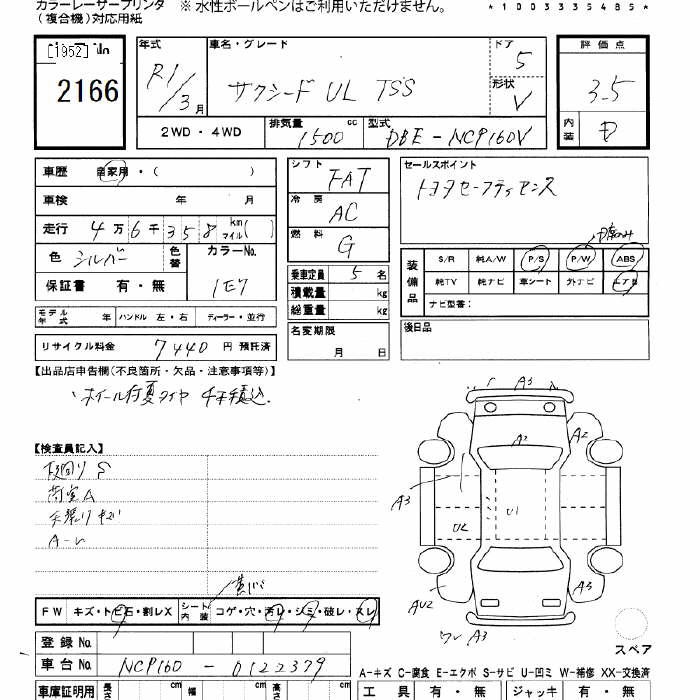 カラーレーザープリンタ ※ 水性ボールペンはご利用いただけません。 * 1 0 0 3 3 3 5 4 8 5 *
(複合機)対応用紙
[1952]
2166
年式 R1/3月
車名・グレード サクシード UL TSS
ドア 5
形状 V
評価点 3.5
内装 D
2WD・4WD
排気量 1500 cc
型式 DBE-NCP160V
車歴 自家用・( )
車検 年 月
走行 4万6千358 km マイル( )
色 シルバー 色替 カラーNo. 1E7
保証書 有・無
モデル年式 年 ハンドル 左・右 ディーラー・並行
リサイクル料金 7440円 預託済
シフト FAT
冷房 AC
燃料 G
乗車定員 5名
積載量 kg
総重量 kg
名変期限 月 日
セールスポイント
トヨタセーフティセンス
装備品 S/R 純A/W P/S P/W ABS
純TV 純ナビ 革シート 外ナビ エアB
ナビ型番:
後日品
【出品店申告欄(不良箇所・欠品・注意事項等)】
ホイール付夏タイヤ 4本積込
【検査員記入】
荷室A
A3
A2
A2
A3
U1
U2
A3
AU2
ワレ A3
FW キズ・トビ石・割レX シート内装 コゲ・穴・汚レ・シミ・破レ・スレ
スペア
登録 No.
車台 No. NCP160 - 0122379
A-キズ C-腐食 E-エクボ S-サビ U-凹ミ W-補修 XX-交換済
車庫証明用 長さ cm 幅 cm 高さ cm 工具 有・無 ジャッキ 有・無